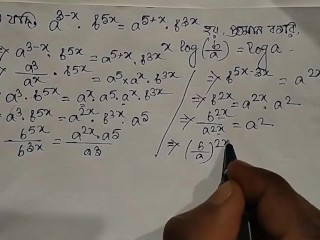 যদি a^{3-x} · b^{5x} = a^{5+x} · b^{3x} হয়, প্রমাণ করো,
x log(b/a) = log a.
⇒ a^{3-x} · b^{5x} = a^{5+x} · b^{3x}
⇒ a^3/a^x · b^{5x} = a^5 · a^x · b^{3x}
a^3 · b^{5x} = a^x · a^x · a^5 · b^{3x}
a^3 · b^{5x} = a^{2x} · b^{3x} · a^5
b^{5x}/b^{3x} = a^{2x} · a^5/a^3
⇒ b^{5x-3x} = a^{2x
⇒ b^{2x} = a^{2x} · a^2
⇒ b^{2x}/a^{2x} = a^2
⇒ (b/a)^{2x